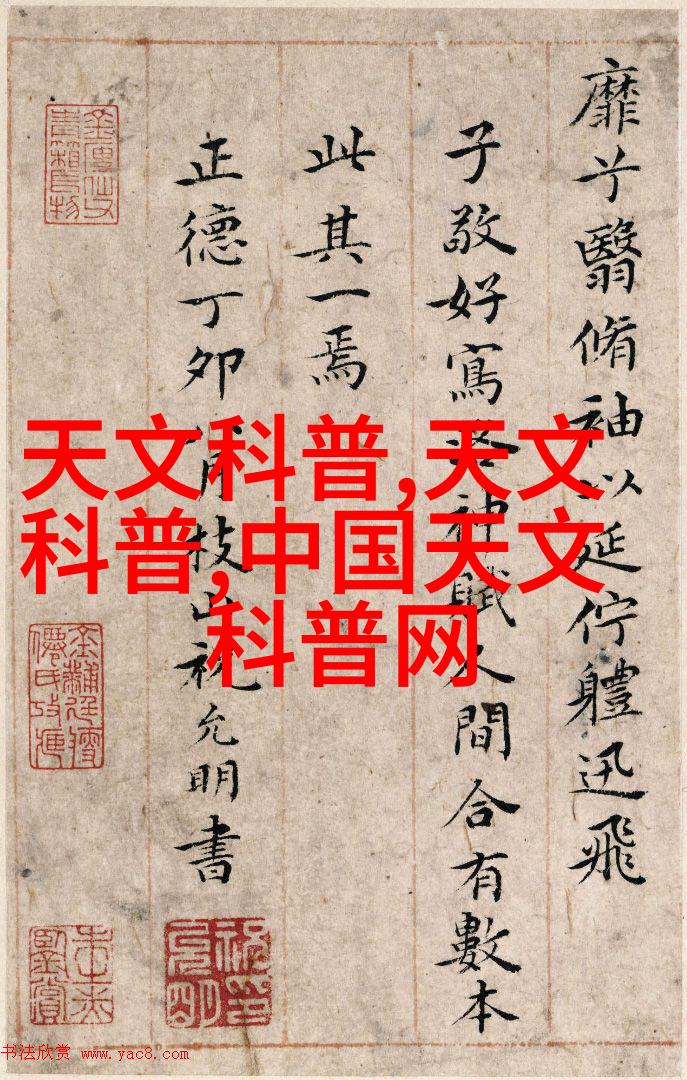 靡兮翳脩袖以延佇體迅飛
子敬好寫洛神賦人間合有數本
此其一焉
正德丁卯八月枝山祝允明書
天文科普,天文
科普,中国天文
科普网
书法欣赏 www.yac8.com